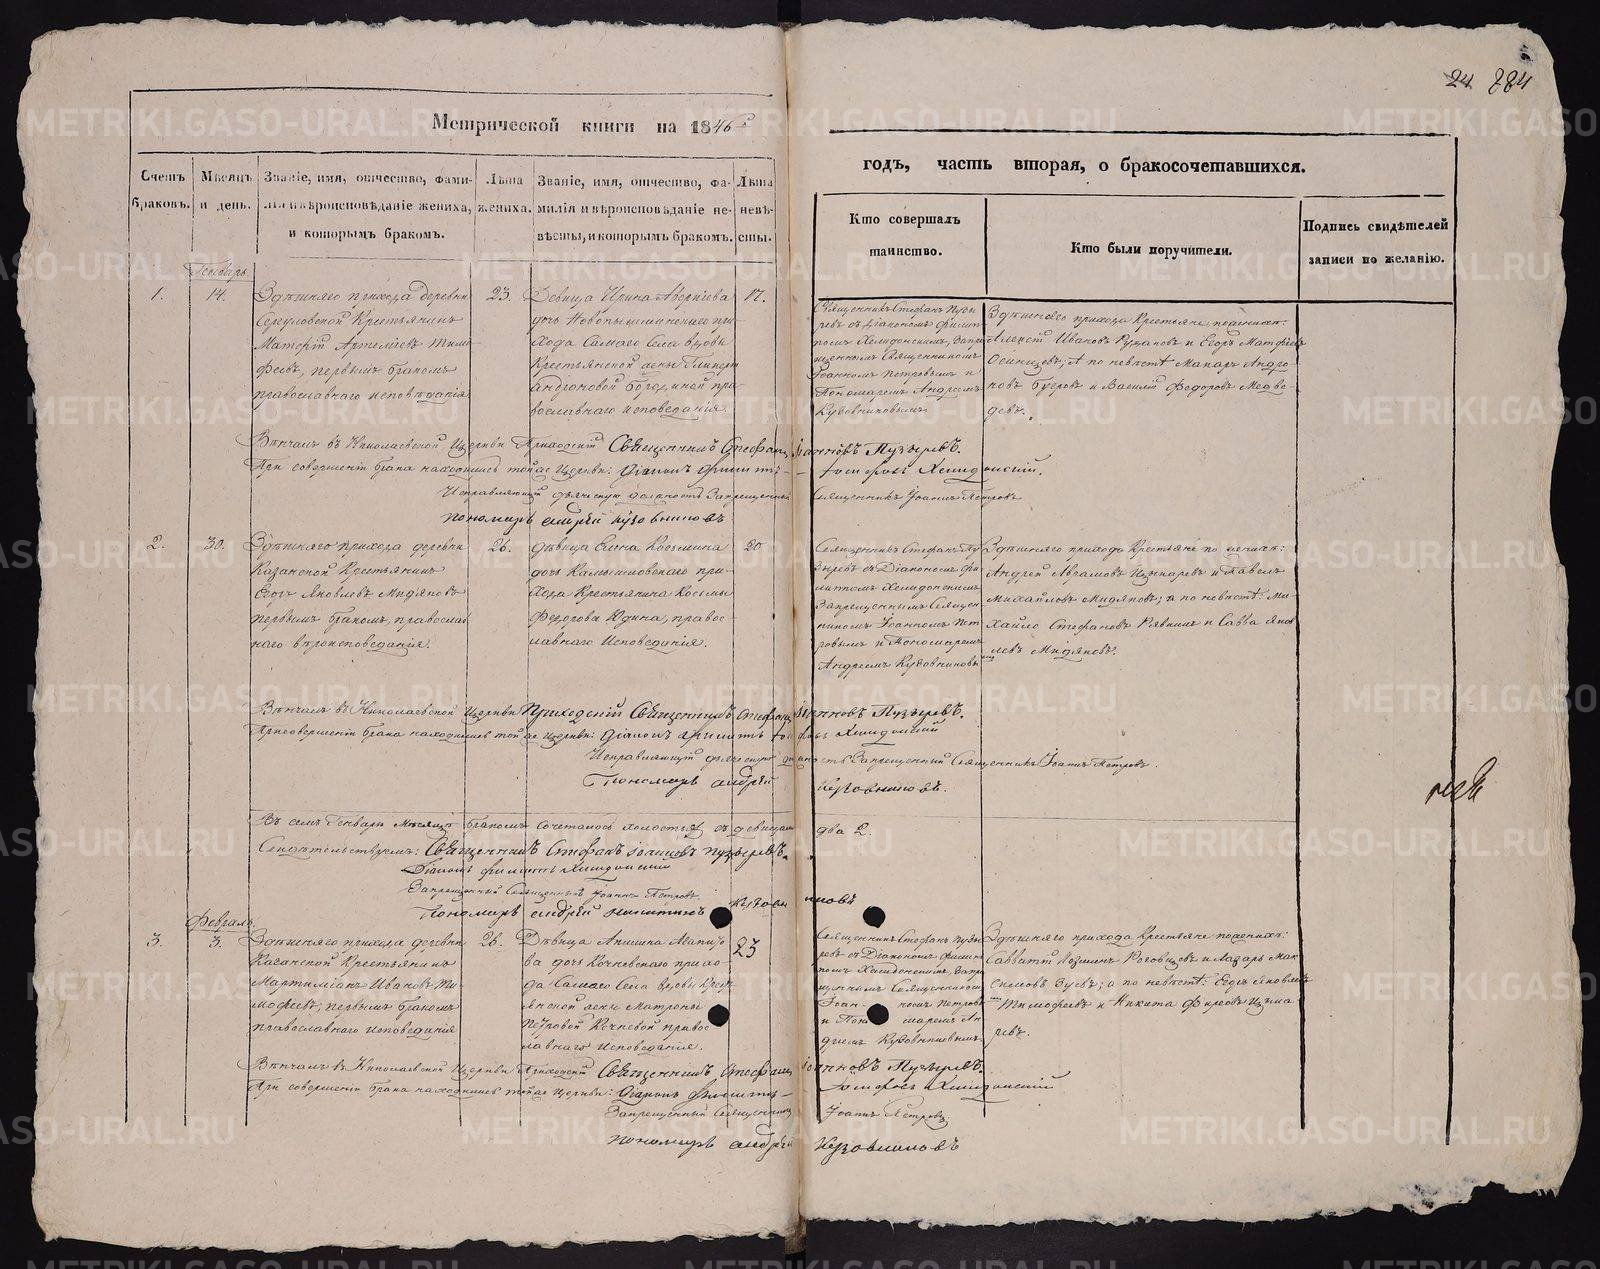 24 284
Метрической книги на 1846й
годъ, часть вторая, о бракосочетавшихся.
Счетъ браковъ.
Мѣсяцъ и день.
Званіе, имя, отчество, фами-
лія и вѣроисповѣданіе жениха,
и которымъ бракомъ.
Лѣта
жениха.
Званіе, имя, отчество, фа-
милія и вѣроисповѣданіе не-
вѣсты, и которымъ бракомъ.
Лѣта
невѣ-
сты.
Кто совершалъ
таинство.
Кто были поручители.
Подпись свидѣтелей
записи по желанію.
Генварь
1.
14.
Здѣшняго прихода деревни
Сергуловской Крестьянинъ
Артеміевъ Тимо-
феевъ, первымъ бракомъ
православнаго исповѣданія
23.
Девица Ирина
дочь Новопышминскаго при-
хода Самаго Села вдовы
Крестьянской жены Гликеріи
Андроновой Бородиной пра-
вославнаго исповеданія.
17.
Священникъ Стефанъ Пузы-
ревъ съ Діакономъ Филип-
помъ Хелидонскимъ, Запре-
щеннымъ Священникомъ
Іоанномъ Петровымъ и
Пономаремъ Андреемъ
Кузовниковымъ
Здѣшняго прихода Крестьяне, по женихѣ:
Алексѣй Ивановъ Рудаковъ и Егоръ
Осинцевъ, А по невѣстѣ Макаръ Андро-
новъ и Василій Федоровъ Медве-
девъ.
Вѣнчалъ въ Николаевской Церкви Приходскій Священникъ Стефанъ Іоанновъ Пузыревъ.
При совершеніи брака находились той же Церкви: Діаконъ Филиппъ Хелидонскій.
Исправляющій дьяческую должность Запрещенный Священникъ Іоаннъ Петровъ
пономарь андрей кузовниковъ
2.
30.
Здѣшняго прихода деревни
Казанской Крестьянинъ
Егоръ Яковлевъ Мидяновъ
первымъ бракомъ, православ-
наго вѣроисповеданія.
26.
дѣвица Елена Косьмина
дочь Камышловскаго при-
хода Крестьянина Косьмы
Федорова Юдина, право-
славнаго Исповеданія.
20
Священникъ Стефанъ Пу-
зыревъ съ Діакономъ Фи-
липпомъ Хелидонскимъ
Запрещеннымъ Священ-
никомъ Іоанномъ Пет-
ровымъ и Пономаремъ
Андреемъ Кузовниковы
мъ
Здѣшняго прихода Крестьяне по женихѣ:
Андрей Аврамовъ и Павелъ
Михайловъ Мидяновъ; а по невѣстѣ: Ми-
хайло Стефановъ и Савва Яков-
левъ Мидяновъ.
Вѣнчалъ въ Николаевской Церкви Приходскій Священникъ Стефанъ Іоанновъ Пузыревъ.
При совершеніи брака находились той же Церкви: Діаконъ Филиппъ Хелидонскій
Исправляющій дьяческую должность Запрещенный Священникъ Іоаннъ Петровъ.
Пономарь андрей кузовниковъ.
Въ семъ Генварѣ Мѣсяцѣ бракомъ сочеталось холостыхъ съ девицами два 2.
Свидѣтельствуемъ: Священникъ Стефанъ Іоанновъ Пузыревъ.
Діаконъ Филиппъ Хелидонскій
Запрещенный Священникъ Іоаннъ Петровъ
Пономарь андрей никитинъ кузовниковъ
Февраль
3.
3.
Здѣшняго прихода деревни
Казанской Крестьянинъ
Мартиміанъ Ивановъ Ти-
мофеевъ, первымъ бракомъ
православнаго исповеданія
26.
Дѣвица Анисья
ва дочь Кочневскаго прихо-
да Самаго Села вдовы Кресть-
янской жены Матроны
Петровой Кочневой право-
славнаго Исповеданія.
23
Священникъ Стефанъ Пузы-
ревъ съ Діакономъ Филип-
помъ Хелидонскимъ, Запре-
щеннымъ Священникомъ
Іоанномъ Петровы
и Пономаремъ Ан-
дреемъ Кузовниковымъ
Здѣшняго прихода Крестьяне по женихѣ:
Савватій и Лазарь Мак-
симовъ; а по невѣстѣ: Егоръ Яковлевъ
Тимофеевъ и Никита
Вѣнчалъ въ Николаевской Церкви Приходскій Священникъ Стефанъ Іоанновъ Пузыревъ.
При совершеніи брака находились той же Церкви: Діаконъ Филиппъ Хелидонскій
Запрещенный Священникъ Іоаннъ Петровъ
пономарь андрей кузовниковъ
METRIKI.GASO-URAL.RU